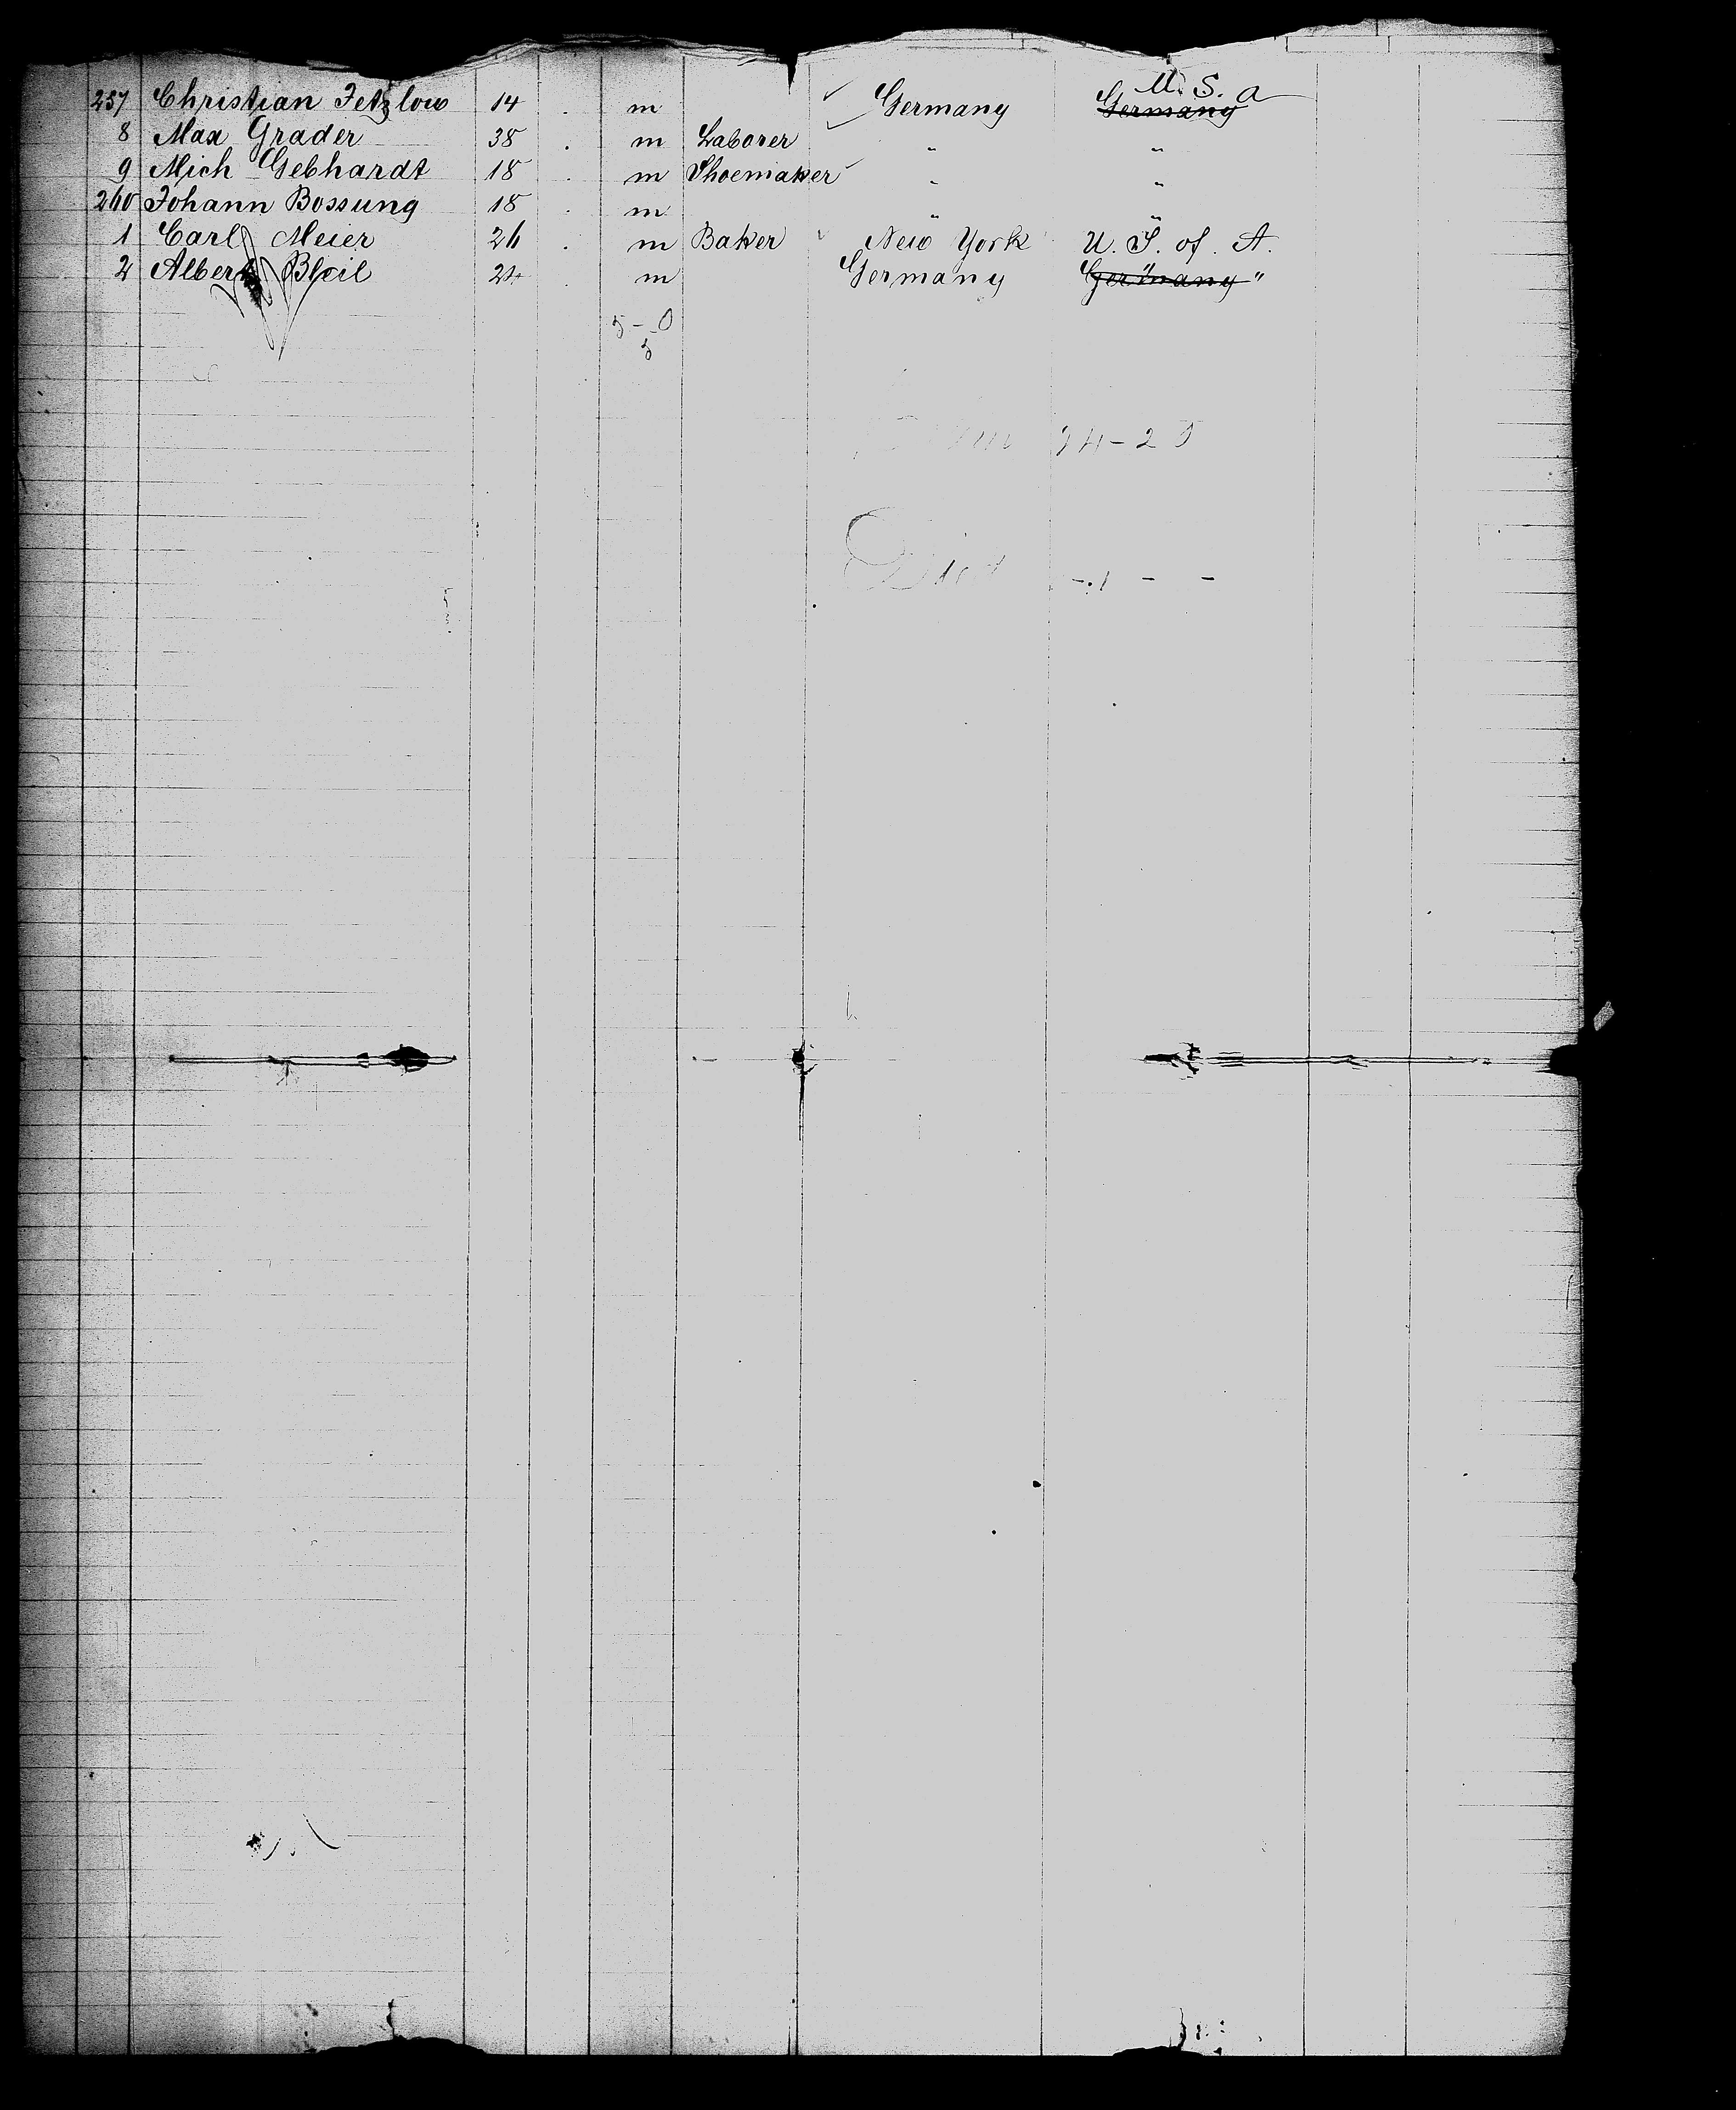 U. S. a
257 Christian Tetzlow 14 m Germany Germany
8 Max Grader 38 m Laborer " "
9 Mich Gebhardt 18 m Shoemaker " "
260 Johann Bossung 18 m " "
1 Carl Meier 26 m Baker New York U. S. of A.
2 Albert Bleil 24 m Germany Germany "
5 - 0
5
24-25
Died - 1 - -